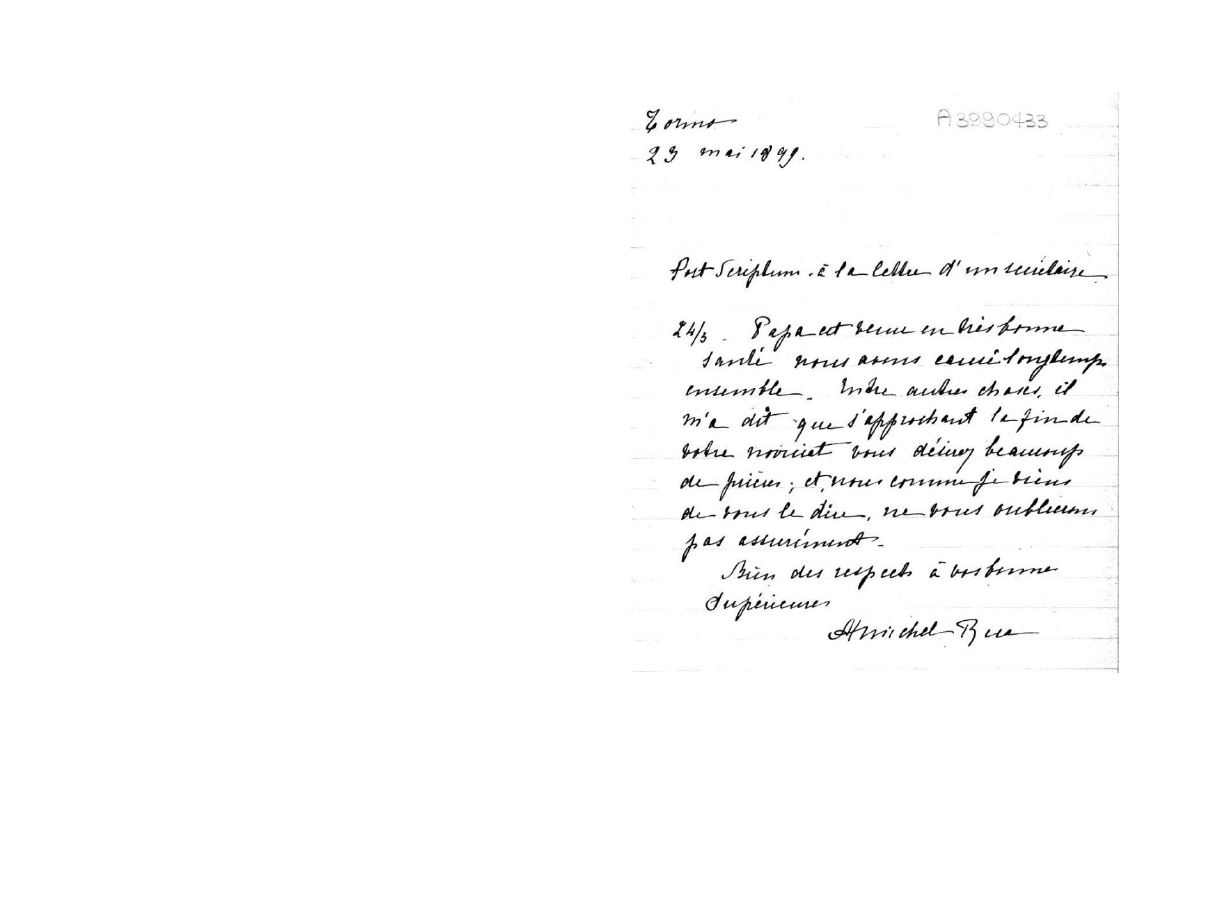 Torino
A3990433
23 mai 1899.
Post Scriptum à la lettre d'un secrétaire
24/5. Papa est venu en très bonne
santé nous avons causé longtemps
ensemble. Entre autres choses, il
m'a dit que s'approchant la fin de
votre noviciat vous désirez beaucoup
de prières; et nous comme je viens
de vous le dire, ne vous oublierons
pas assurément.
Bien des respects à vos bonne
Supérieures
Michel Rua